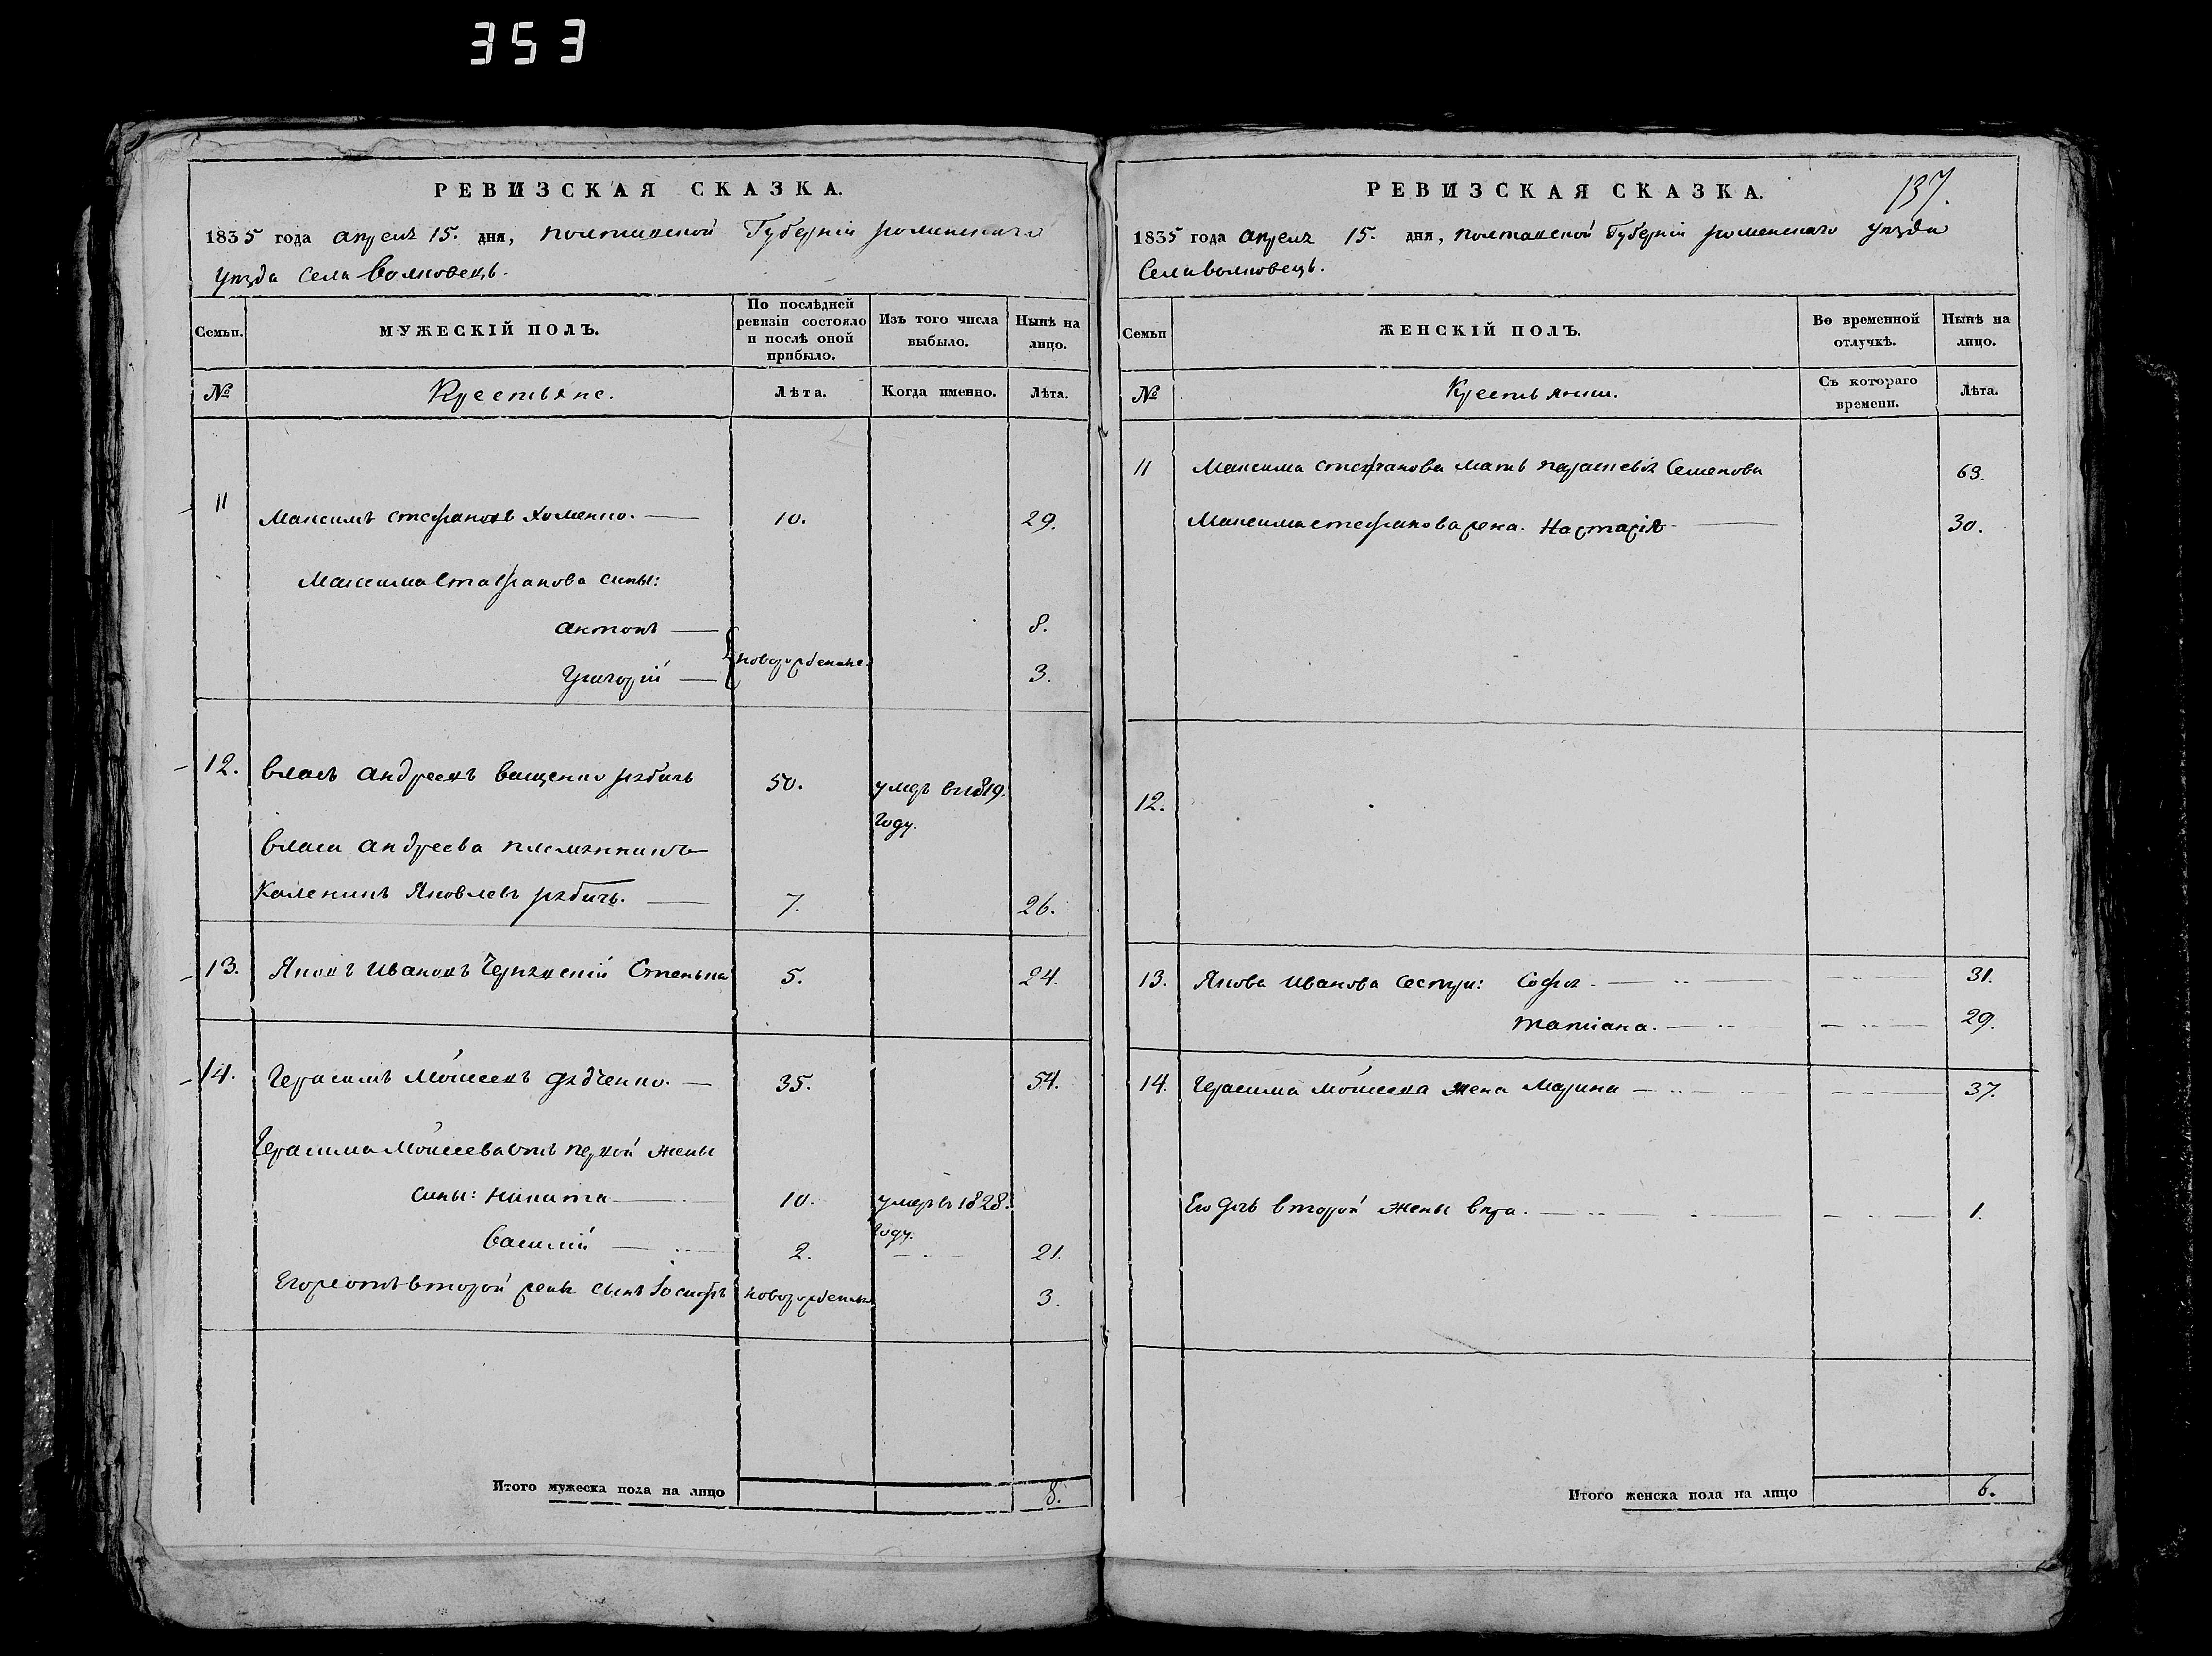 353
РЕВИЗСКАЯ СКАЗКА.
1835 года апреля 15. дня, полтавской Губерніи роменскаго
уезда села Волковецъ.
Семьи.
МУЖЕСКІЙ ПОЛЪ.
По послѣдней ревизіи состояло и послѣ оной прибыло.
Изъ того числа выбыло.
Нынѣ на лицо.
№
Крестьяне.
Лѣта.
Когда именно.
Лѣта.
11 Максимъ стефановъ Хоменко. — 10. 29.
Максима Стефанова сины:
антонъ — 8.
новорожденные.
Григорій — 3.
12. власъ андреевъ ващенко рябичь 50. умеръ в 1819.
году.
власа андреева племянникъ
Каленикъ Яковлевъ рябичь. — 7. 26.
13. Яковъ Ивановъ Чернявскій Стенька 5. 24.
14. Герасимъ Моисеевъ дядченко. — 35. 54.
Герасима Моисеева отъ первой жены
сины: Никита — 10. умеръ в 1828.
году.
Василій — 2. 21.
Егоже отъ второй жены сынъ Іосифъ новорожденъ 3.
Итого мужеска пола на лицо 8.
РЕВИЗСКАЯ СКАЗКА.
137.
1835 года апреля 15. дня, полтавской Губерніи роменскаго уезда
Села волковецъ.
Семьи
ЖЕНСКІЙ ПОЛЪ.
Во временной отлучкѣ.
Нынѣ на лицо.
№
Крестьянки.
Съ котораго времени.
Лѣта.
11 Максима стефанова мать параскевія Семенова 63.
Максима стефанова жена. Настасія — 30.
12.
13. Якова Иванова сестри: Софія. — 31.
татіана. — 29.
14. Герасима Моисеева жена Марина — 37.
Его дочь второй жены вера. — 1.
Итого женска пола на лицо 6.